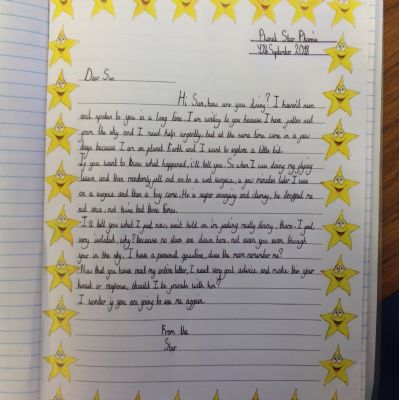 Planet Star Phoenix
12th September 2018
Dear Sun
Hi Sun, how are you doing? I haven't seen
and spoken to you in a long time. I am writing to you because I have fallen out
from the sky and I need help urgently, but at the same time come in a few
days because I am on planet Earth and I want to explore a little bit.
If you want to know what happened, i'll tell you. So when I was doing my flying
lesson and then randomly fell out on to a wet surface, a few minutes later I was
on a surface and then a boy came. He is super annoying and clumsy, he dropped me
not once, not twice but three times.
I'll tell you what I feel now, wait hold on im feeling really dizzy, there. I feel
very isolated, why? because no stars are down here, not even you even though
your in the sky. I have a personal question, does the moon remember me?
Now that you have read my entire letter, I need very good advice and make this your
honest response, should I be friends with him?
I wonder if you are going to see me again.
From the
Star